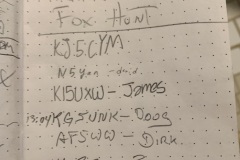 FOX HUNT
KJ5CYM
K15UXW - James
KG5UNK - Doog
AF5WW - Dirk